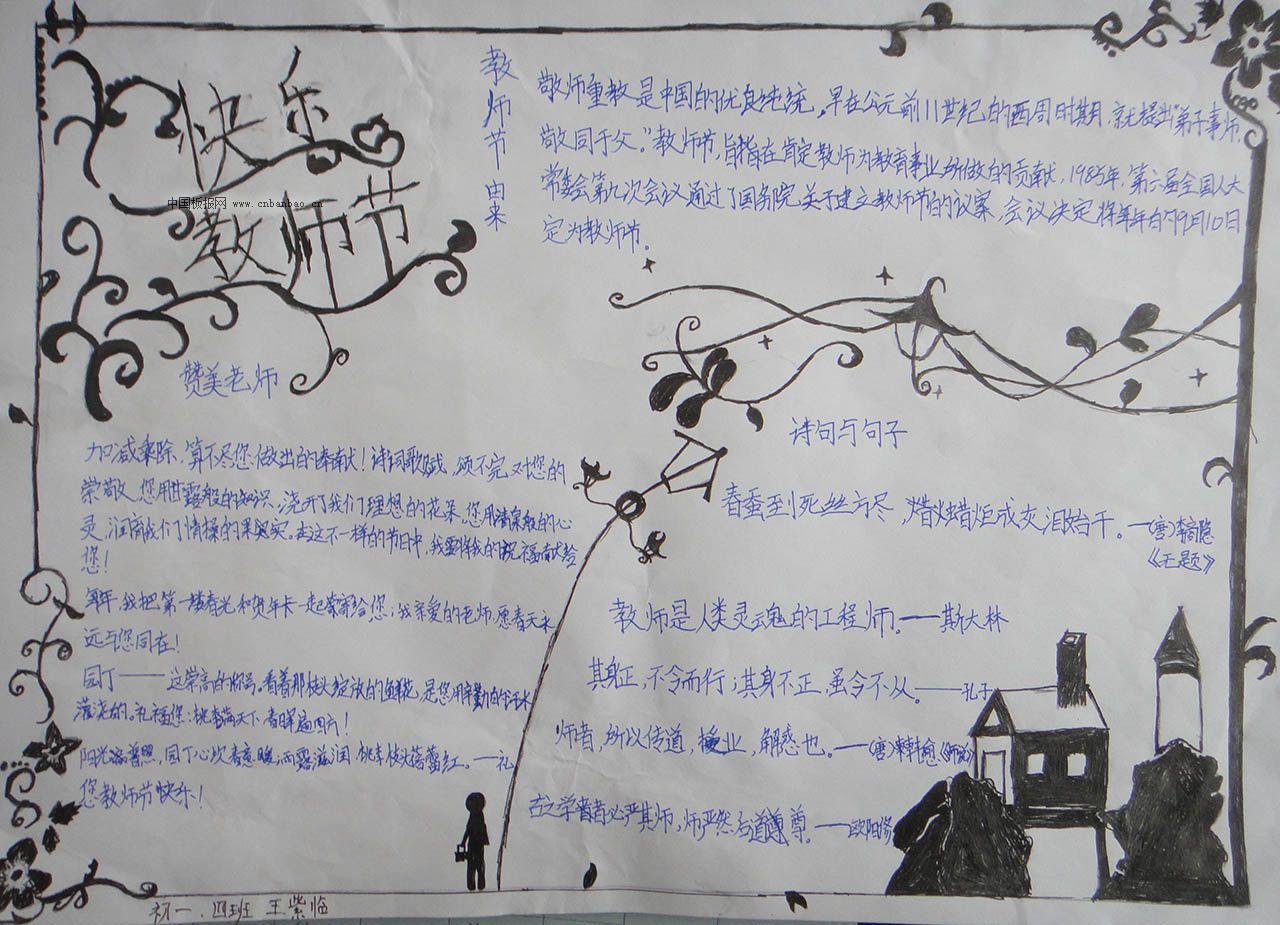 快乐
教师节
中国板报网 www.cnbanbao.cn
教师节由来
敬师重教是中国的优良传统。早在公元前11世纪的西周时期,就提出"弟子事师,
敬同于父。"教师节,旨指在肯定教师为教育事业所做的贡献,1985年,第六届全国人大
常委会第九次会议通过了国务院关于建立教师节的议案,会议决定将每年的9月10日
定为教师节。
赞美老师
加减乘除,算不尽您做出的奉献!诗词歌赋,颂不完对您的
崇敬。您用甘露般的知识,浇开了我们理想的花朵,您用清泉般的心
灵,润商我们情操的果实。在这不一样的节日中,我要将我的祝福献给
您!
每年,我把第一缕春光和贺年卡一起寄给您;我亲爱的老师,愿春天永
远与您同在!
园丁——这崇高的称号。看着那枝头绽放的鲜花,是您用辛勤的汗水
灌浇的。礼福您:桃李满天下,春晖遍四方!
阳光普照,园丁心坎春意暖;雨露滋润,桃李枝头蓓蕾红。——礼
您教师节快乐!
诗句与句子
春蚕到死丝方尽,蜡炬成灰泪始干。——(唐)李商隐
《无题》
教师是人类灵魂的工程师。——斯大林
其身正,不令而行;其身不正,虽令不从。——孔子
师者,所以传道,授业,解惑也。——(唐)韩愈《师说》
古之学者必严其师,师严然后道尊。——欧阳修
初一.四班 王紫临